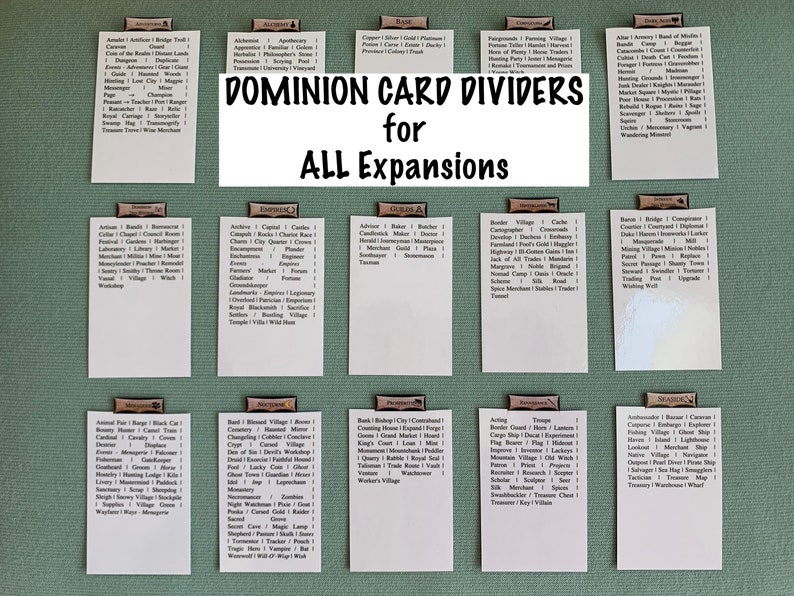 ADVENTURES
Amulet | Artificer | Bridge Troll |
Caravan Guard |
Coin of the Realm | Distant Lands
| Dungeon | Duplicate |
Events - Adventures | Gear | Giant
| Guide | Haunted Woods |
Hireling | Lost City | Magpie |
Messenger | Miser |
Page → Champion |
Peasant → Teacher | Port | Ranger
| Ratcatcher | Raze | Relic |
Royal Carriage | Storyteller |
Swamp Hag | Transmogrify |
Treasure Trove | Wine Merchant
ALCHEMY
Alchemist | Apothecary |
Apprentice | Familiar | Golem |
Herbalist | Philosopher's Stone |
Possession | Scrying Pool |
Transmute | University | Vineyard
BASE
Copper | Silver | Gold | Platinum |
Potion | Curse | Estate | Duchy |
Province | Colony | Trash
CORNUCOPIA
Fairgrounds | Farming Village |
Fortune Teller | Hamlet | Harvest |
Horn of Plenty | Horse Traders |
Hunting Party | Jester | Menagerie
| Remake | Tournament and Prizes
DARK AGES
Altar | Armory | Band of Misfits |
Bandit Camp | Beggar |
Catacombs | Count | Counterfeit |
Cultist | Death Cart | Feodum |
Forager | Fortress | Graverobber |
Hermit / Madman |
Hunting Grounds | Ironmonger |
Junk Dealer | Knights | Marauder |
Market Square | Mystic | Pillage |
Poor House | Procession | Rats |
Rebuild | Rogue | Ruins | Sage |
Scavenger | Shelters | Spoils |
Squire | Storeroom |
Urchin / Mercenary | Vagrant |
Wandering Minstrel
DOMINION CARD DIVIDERS
for
ALL Expansions
DOMINION
Artisan | Bandit | Bureaucrat |
Cellar | Chapel | Council Room |
Festival | Gardens | Harbinger |
Laboratory | Library | Market |
Merchant | Militia | Mine | Moat |
Moneylender | Poacher | Remodel
| Sentry | Smithy | Throne Room |
Vassal | Village | Witch |
Workshop
EMPIRES
Archive | Capital | Castles |
Catapult / Rocks | Chariot Race |
Charm | City Quarter | Crown |
Encampment / Plunder |
Enchantress | Engineer |
Events - Empires |
Farmers' Market | Forum |
Gladiator / Fortune |
Groundskeeper |
Landmarks - Empires | Legionary
| Overlord | Patrician / Emporium |
Royal Blacksmith | Sacrifice |
Settlers / Bustling Village |
Temple | Villa | Wild Hunt
GUILDS
Advisor | Baker | Butcher |
Candlestick Maker | Doctor |
Herald | Journeyman | Masterpiece
| Merchant Guild | Plaza |
Soothsayer | Stonemason |
Taxman
HINTERLANDS
Border Village | Cache |
Cartographer | Crossroads |
Develop | Duchess | Embassy |
Farmland | Fool's Gold | Haggler |
Highway | Ill-Gotten Gains | Inn |
Jack of All Trades | Mandarin |
Margrave | Noble Brigand |
Nomad Camp | Oasis | Oracle |
Scheme | Silk Road |
Spice Merchant | Stables | Trader |
Tunnel
INTRIGUE
Baron | Bridge | Conspirator |
Courtier | Courtyard | Diplomat |
Duke | Harem | Ironworks | Lurker
| Masquerade | Mill |
Mining Village | Minion | Nobles |
Patrol | Pawn | Replace |
Secret Passage | Shanty Town |
Steward | Swindler | Torturer |
Trading Post | Upgrade |
Wishing Well
MENAGERIE
Animal Fair | Barge | Black Cat |
Bounty Hunter | Camel Train |
Cardinal | Cavalry | Coven |
Destrier | Displace |
Events - Menagerie | Falconer |
Fisherman | GateKeeper |
Goatherd | Groom | Horse |
Hostelry | Hunting Lodge | Kiln |
Livery | Mastermind | Paddock |
Sanctuary | Scrap | Sheepdog |
Sleigh | Snowy Village | Stockpile
| Supplies | Village Green |
Wayfarer | Ways - Menagerie
NOCTURNE
Bard | Blessed Village | Boons |
Cemetery / Haunted Mirror |
Changeling | Cobbler | Conclave |
Crypt | Cursed Village |
Den of Sin | Devil's Workshop |
Druid | Exorcist | Faithful Hound |
Fool / Lucky Coin | Ghost |
Ghost Town | Guardian | Hexes |
Idol | Imp | Leprechaun |
Monastery |
Necromancer / Zombies |
Night Watchman | Pixie / Goat |
Pooka / Cursed Gold | Raider |
Sacred Grove |
Secret Cave / Magic Lamp |
Shepherd / Pasture | Skulk | States
| Tormentor | Tracker / Pouch |
Tragic Hero | Vampire / Bat |
Werewolf | Will-O'-Wisp | Wish
PROSPERITY
Bank | Bishop | City | Contraband |
Counting House | Expand | Forge |
Goons | Grand Market | Hoard |
King's Court | Loan | Mint |
Monument | Mountebank | Peddler
| Quarry | Rabble | Royal Seal |
Talisman | Trade Route | Vault |
Venture | Watchtower |
Worker's Village
RENAISSANCE
Acting Troupe |
Border Guard / Horn / Lantern |
Cargo Ship | Ducat | Experiment |
Flag Bearer / Flag | Hideout |
Improve | Inventor | Lackeys |
Mountain Village | Old Witch |
Patron | Priest | Projects |
Recruiter | Research | Scepter |
Scholar | Sculptor | Seer |
Silk Merchant | Spices |
Swashbuckler / Treasure Chest |
Treasurer / Key | Villain
SEASIDE
Ambassador | Bazaar | Caravan |
Cutpurse | Embargo | Explorer |
Fishing Village | Ghost Ship |
Haven | Island | Lighthouse |
Lookout | Merchant Ship |
Native Village | Navigator |
Outpost | Pearl Diver | Pirate Ship
| Salvager | Sea Hag | Smugglers |
Tactician | Treasure Map |
Treasury | Warehouse | Wharf